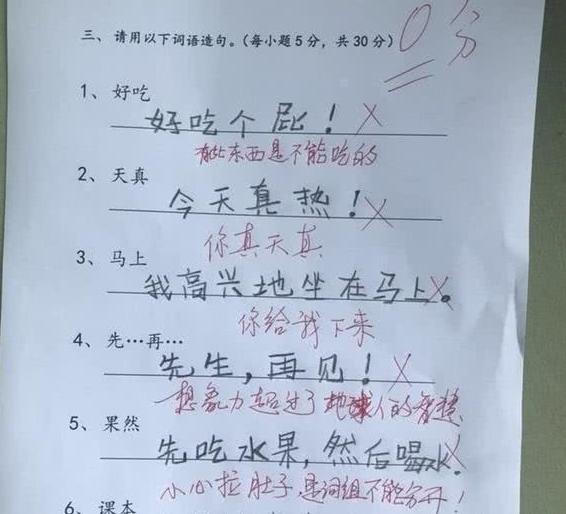 三、请用以下词语造句。(每小题5分,共30分) 0分
1、好吃
好吃个屁!×
有些东西是不能吃的
2、天真
今天真热!×
你真天真
3、马上
我高兴地坐在马上。×
你给我下来
4、先…再…
先生,再见!×
想象力超过了地球人的智慧
5、果然
先吃水果,然后喝水。×
小心拉肚子 是词组不能分开!
6、课本